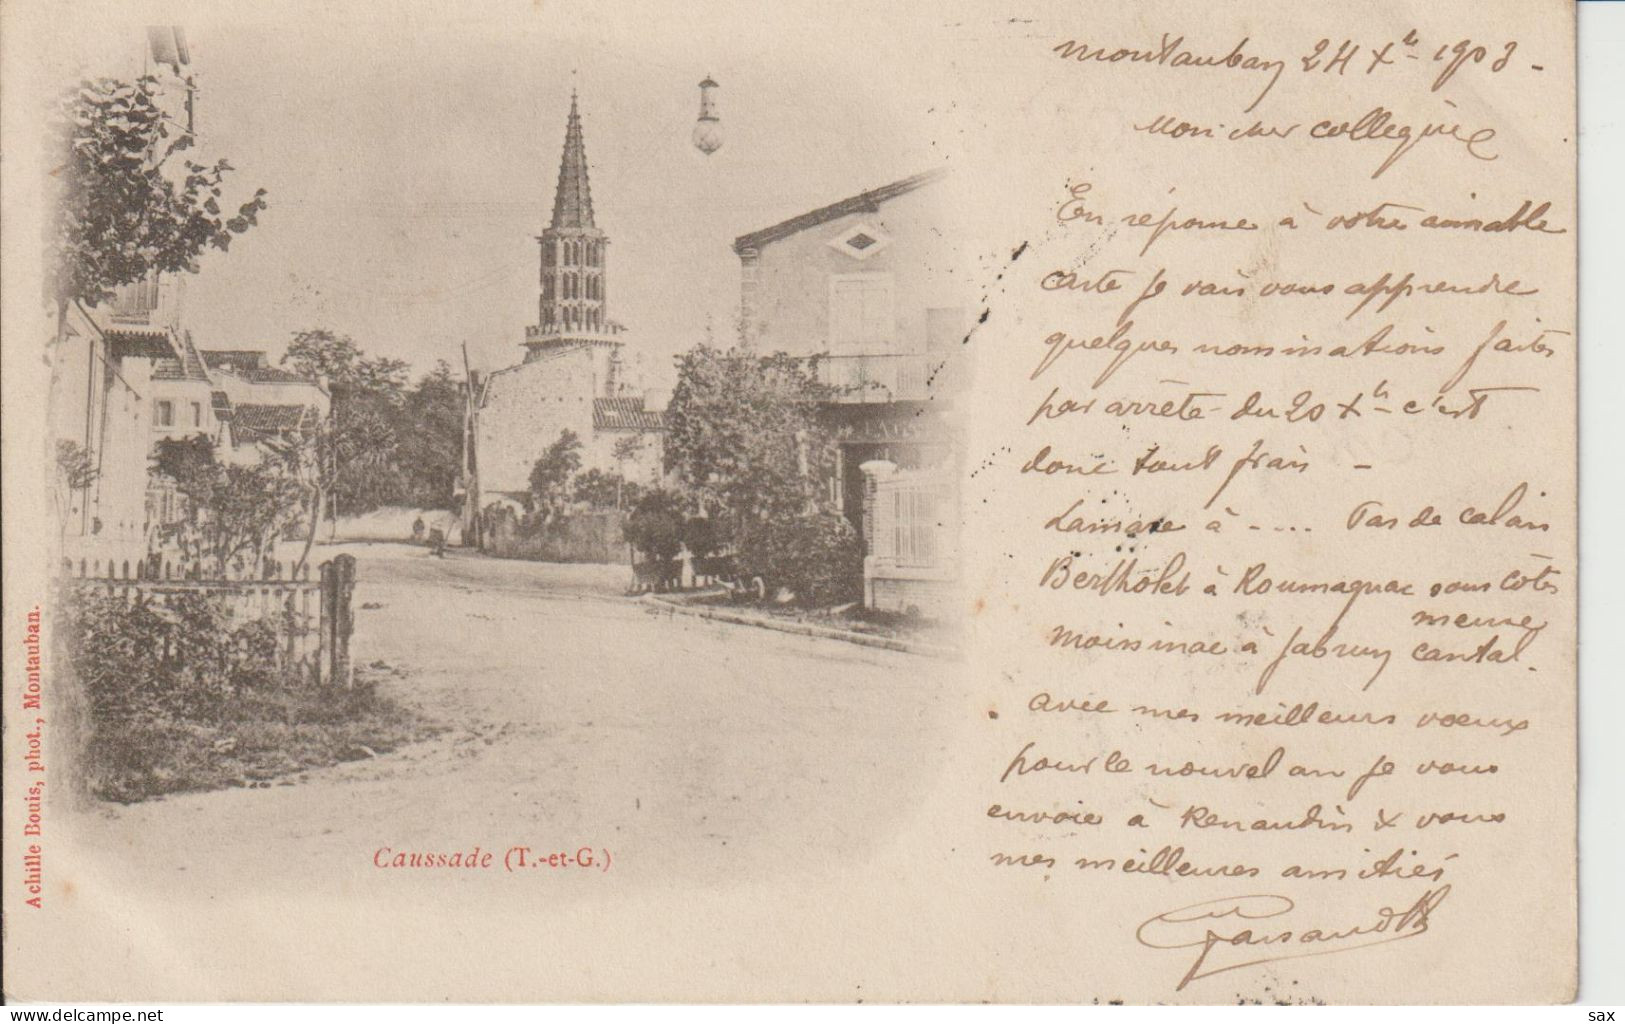 Montauban 24 Xbre 1903 -
Mon cher collegue
En réponse à votre aimable
carte je vais vous apprendre
quelques nominations faites
par arrêté du 20 Xbre c'est
donc tout frais -
Lamare à - ... Pas de Calais
Berthelot à Roumagnac sous côtes
meuse
Moissinac à Jabrun Cantal.
avec mes meilleurs voeux
pour le nouvel an je vous
envoie à Renaudin & vous
mes meilleures amitiés
LA
Caussade (T.-et-G.)
Achille Bouis, phot., Montauban.
www.delcampe.net
sax